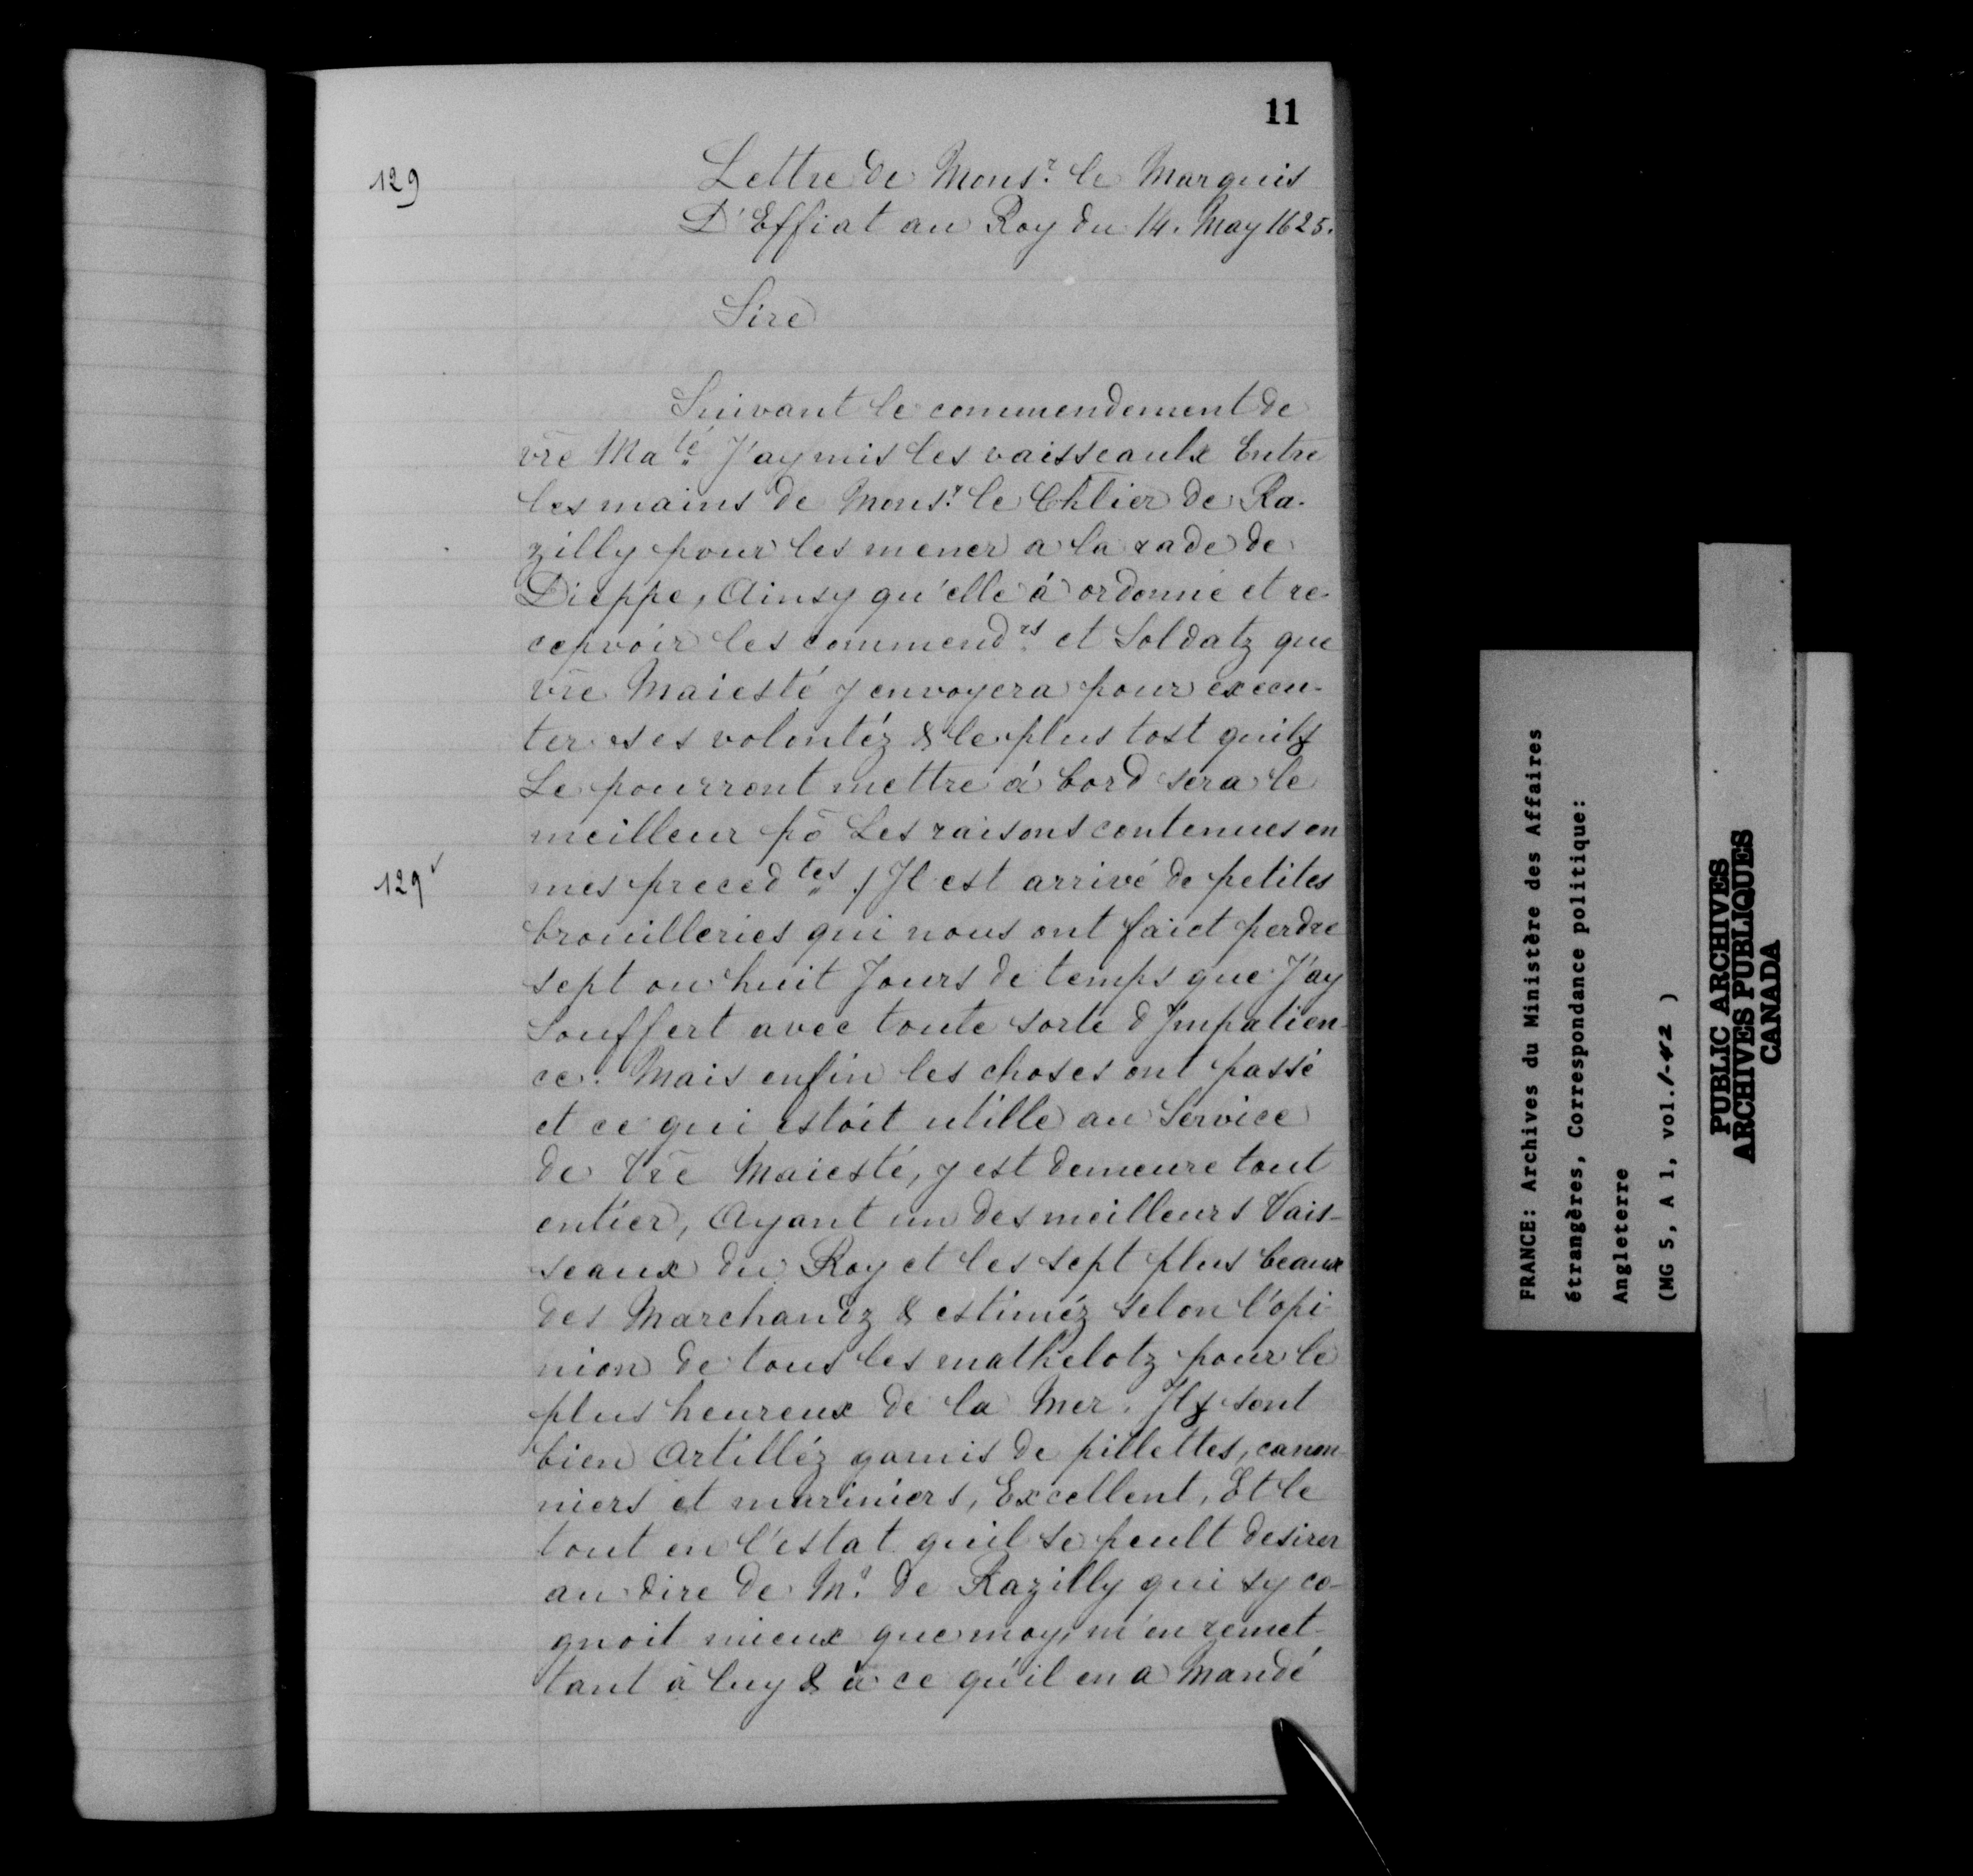 11
129
Lettre de Mons.r le Marquis
D'Effiat au Roy du 14. May 1625.
Sire
Suivant le commendement de
vr̄e Ma.té J'ay mis les vaisseaulx Entre
les mains de Mons.r le Chlier de Ra-
zilly pour les mener a la rade de
Dieppe, Ainsy qu'elle à ordonné et re-
cepvoir les commend.rs et Soldatz que
vr̄e Maiesté y envoyera pour execu-
ter ses volontéz & le plus tost quilz
Le pourront mettre à bord sera le
meilleur pō Les raisons contenues en
129v
mes preced.tes / Il est arrivé de petites
brouilleries qui nous ont faict perdre
sept ou huit Jours de temps que J'ay
Souffert avec toute sorte d'Impatien-
ce. Mais enfin les choses ont passé
et ce qui estoit utille au Service
de Vr̄e Maiesté, y est demeure tout
entier, Ayant un des meilleurs Vais-
seaux du Roy et les sept plus beaux
des Marchandz & estiméz selon l'opi-
nion de tous les mathelotz pour le
plus heureux de la Mer. Ilz sont
bien Artilléz garnis de pillettes, canon-
niers et mariniers, Excellent, Et le
tout en l'estat quil se peult desirer
au dire de M.r de Razilly qui sy co-
gnoit mieux que moy, m'en remet-
tant à luy & à ce qu'il en a Mandé
FRANCE: Archives du Ministère des Affaires
étrangères, Correspondance politique:
Angleterre
(MG 5, A 1, vol.1-42 )
PUBLIC ARCHIVES
ARCHIVES PUBLIQUES
CANADA